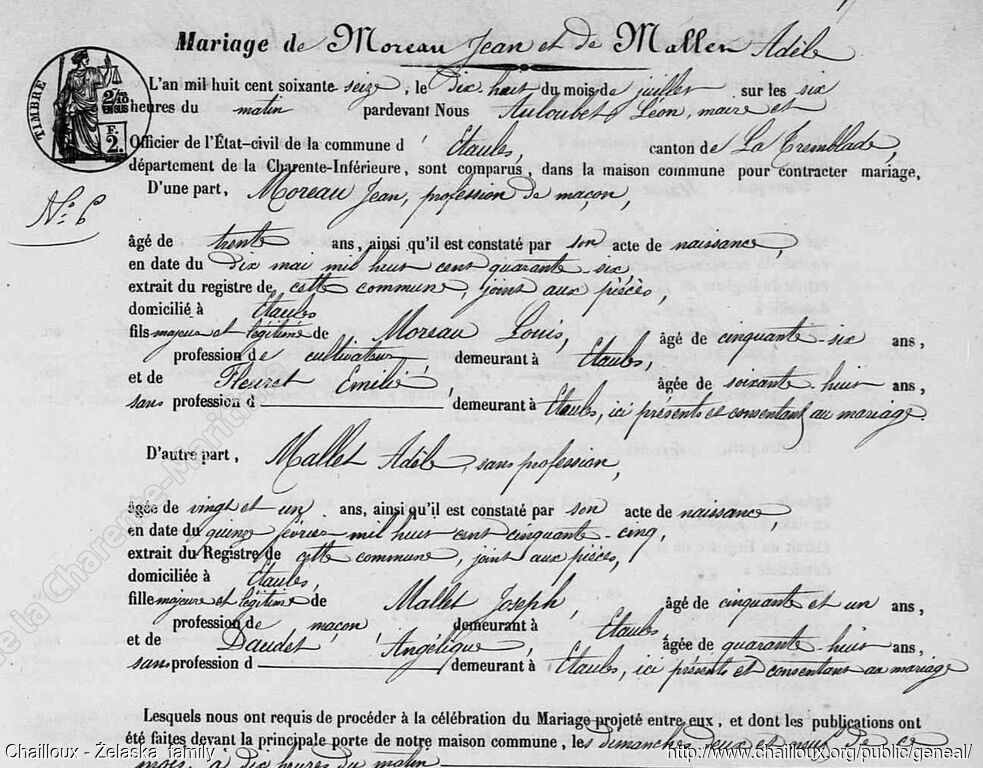 Mariage de Moreau Jean et de Mallet Adèle
L'an mil huit cent soixante seize, le dix huit du mois de juillet sur les six
heures du matin pardevant Nous Auloubet Léon, maire et
Officier de l'État-civil de la commune d' Etaules, canton de La Tremblade,
département de la Charente-Inférieure, sont comparus, dans la maison commune pour contracter mariage,
D'une part, Moreau Jean, profession de maçon,
TIMBRE
2/10 EN SUS
F. 2.
No. 6
âgé de trente ans, ainsi qu'il est constaté par son acte de naissance,
en date du dix mai mil huit cent quarante-six
extrait du registre de cette commune, joint aux pièces,
domicilié à Etaules
fils majeur et légitime de Moreau Louis, âgé de cinquante-six ans,
profession de cultivateur, demeurant à Etaules,
et de Fleuret Emilie, âgée de soixante-huit ans,
sans profession d demeurant à Etaules, ici présents et consentant au mariage.
D'autre part, Mallet Adèle, sans profession,
âgée de vingt et un ans, ainsi qu'il est constaté par son acte de naissance,
en date du quinze février mil huit cent cinquante-cinq,
extrait du Registre de cette commune, joint aux pièces,
domiciliée à Etaules,
fille majeure et légitime de Mallet Joseph, âgé de cinquante et un ans,
profession de maçon, demeurant à Etaules
et de Daudet Angélique, âgée de quarante-huit ans,
sans profession d demeurant à Etaules, ici présents et consentant au mariage
Lesquels nous ont requis de procéder à la célébration du Mariage projeté entre eux, et dont les publications ont
été faites devant la principale porte de notre maison commune, les dimanches deux et neuf de ce
mois, à dix heures du matin
de la Charente-Marit
Chailloux - Żelaska family
http://www.chailloux.org/public/geneal/